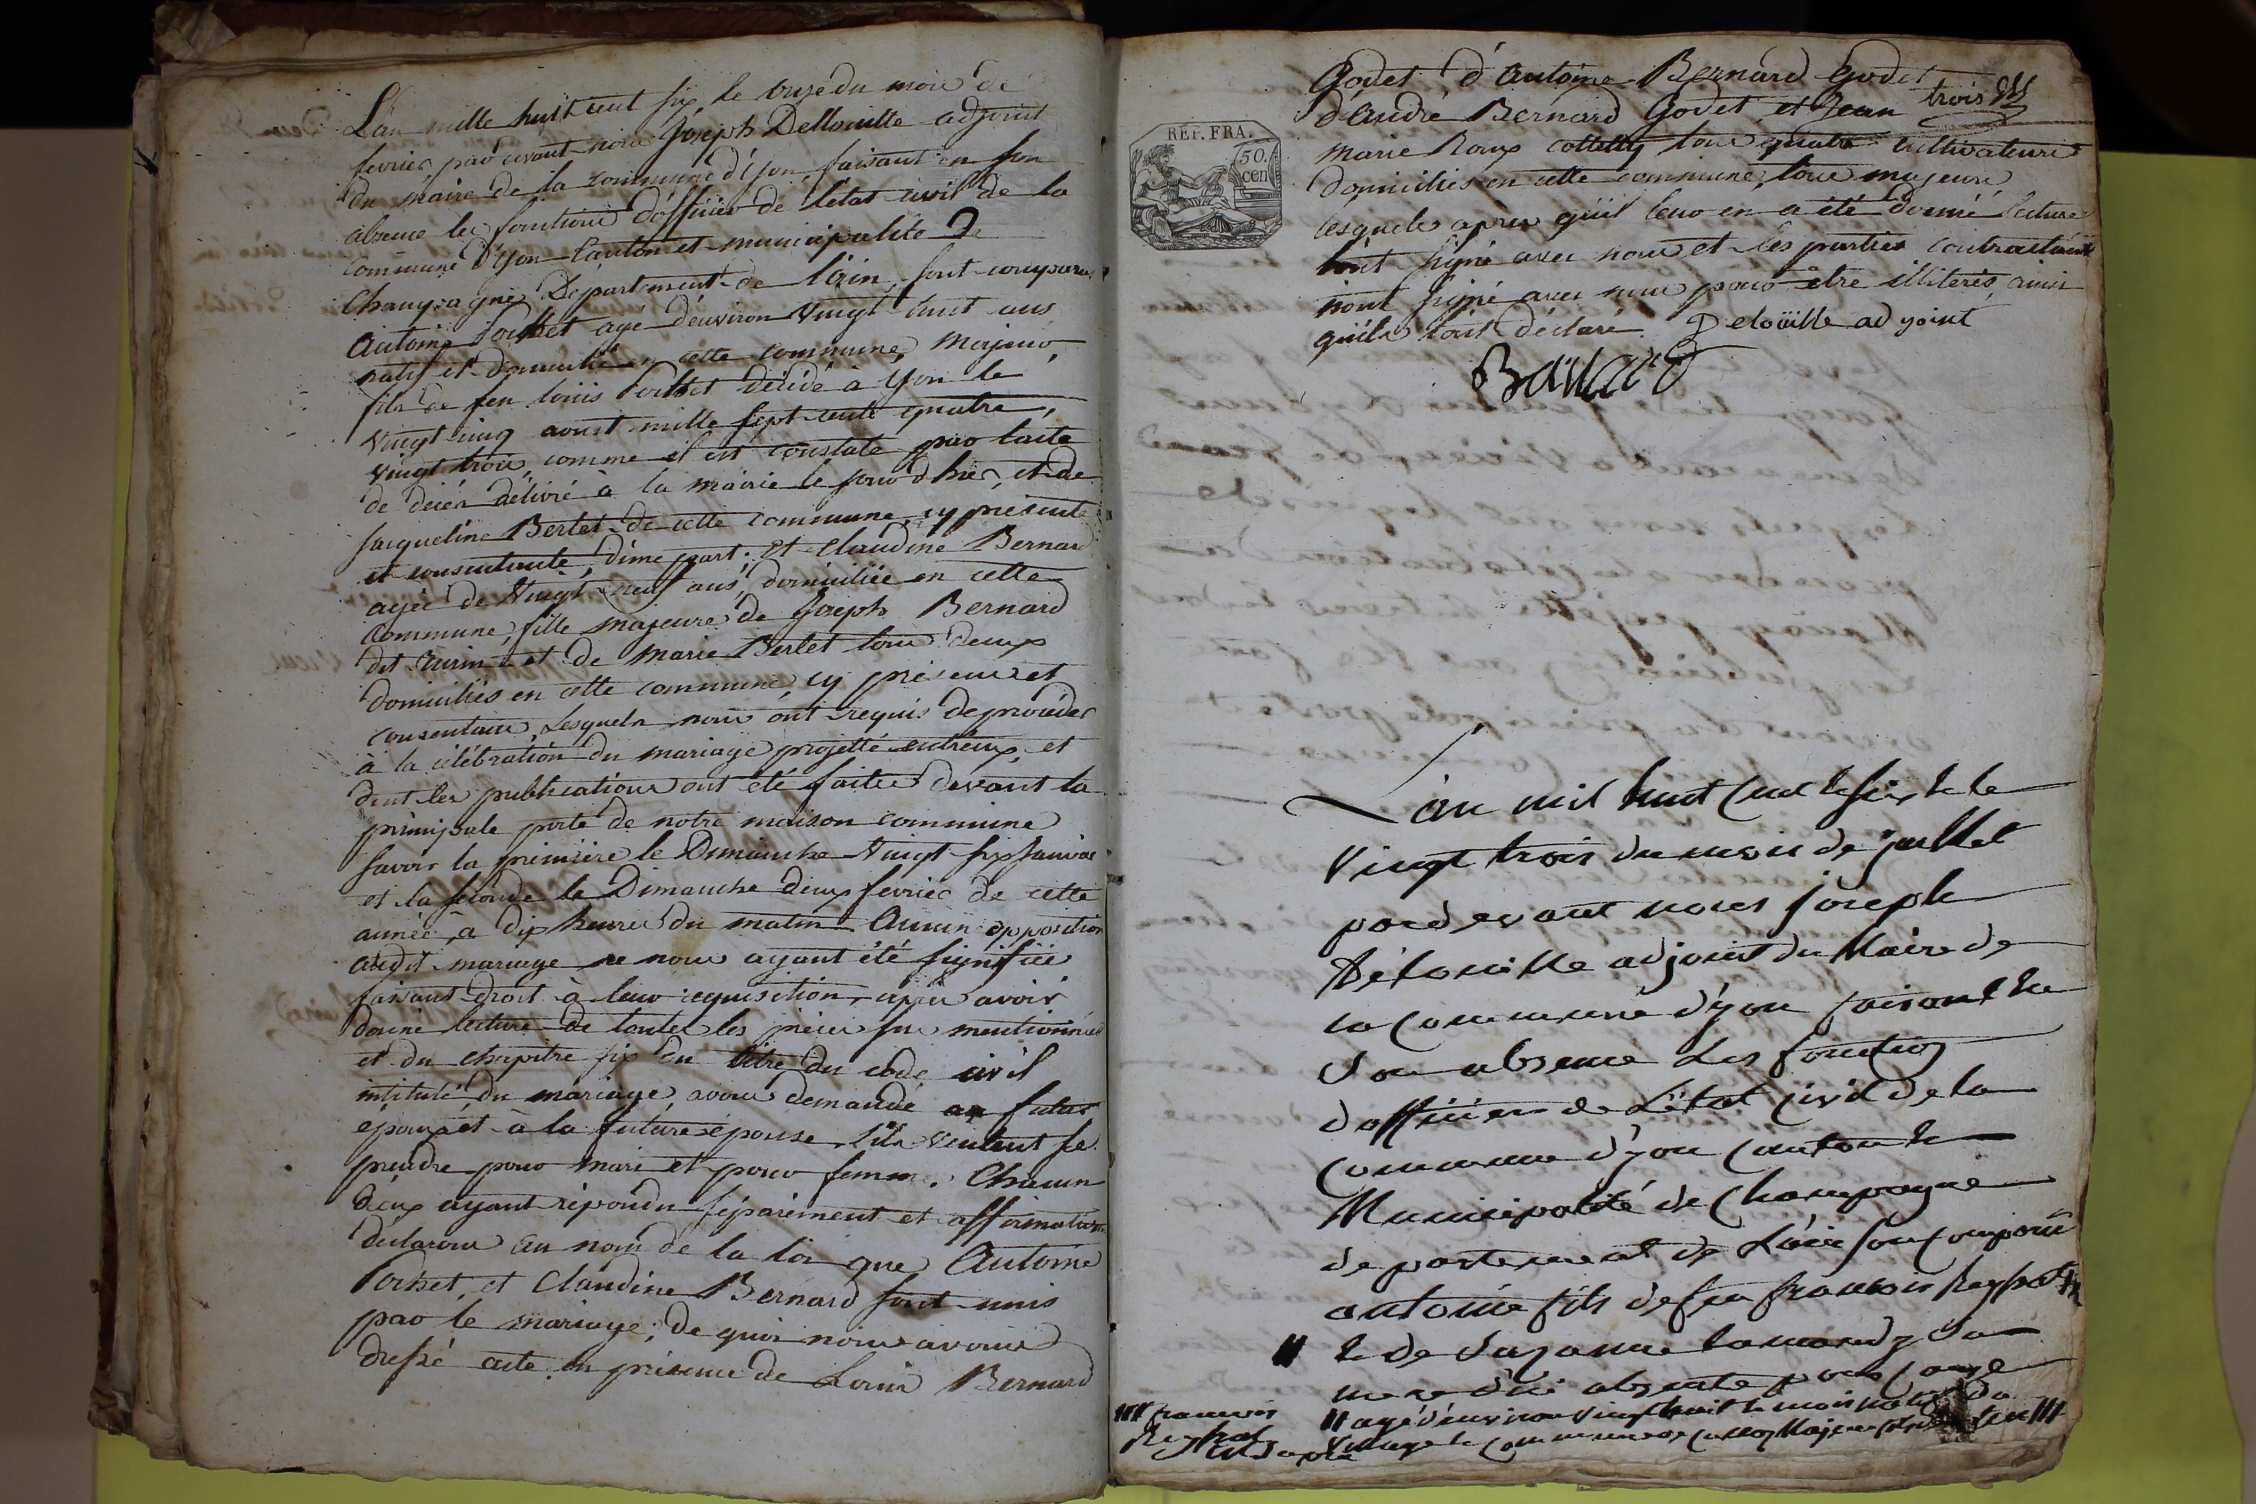 L'an mille huit cent six, le onze du mois de
fevrier, par devant nous Joseph Dellouille adjoint
du maire de la commune d'Yon, faisant en son
absence les fonctions d'officier de letat civil de la
commune d'yon canton et municipalité De
Champagne Département de l'ain, sont comparus
Antoine Pochet age d'environ Vingt huit ans
natif et domicilié en cette commune, Majeur,
fils de feu Louis Pochet décédé à Yon le
vingt cinq aoust mille sept cents quatre,
vingt trois, comme il est constate par lacte
de décès délivré à la mairie le jour d'hier, et de
Jacqueline Berlet de cette commune, cy présente
et consentante, d'une part; et Claudine Bernard
agée de Vingt neuf ans, domiciliée en cette
Commune, fille majeure de Joseph Bernard
dit Turin et de Marie Berlet tous deux
domiciliés en cette commune, cy présens et
consentans, Lesquels nous ont requis de procéder
à la célébration du mariage projetté entr'eux, et
dont les publications ont été faites devant la
principale porte de notre maison commune
savoir la première le Dimanche Vingt six Janvier
et la seconde le Dimanche deux fevrier de cette
année, à dix heures du matin Aucun opposition
audit mariage ne nous ayant été signifiée
faisant droit à leur requisition, après avoir
donné lecture de toutes les pièces sus mentionnées
et du chapitre six du titre du code civil
intitulé du mariage, avons demandé au futur
époux et à la future épouse s'ils veulent se
prendre pour mari et pour femme. Chacun
deux ayant répondu séparément et affirmativem.
declarons au nom de la loi que Antoine
Pochet, et Claudine Bernard sont unis
par le mariage; de quoi nous avons
dressé acte en présence de Louis Bernard
Godet, d'antoine Bernard Godet
d'André Bernard Godet, et Jean trois
REP. FRA.
50.
cen
marie Roux tous quatre cultivateurs
domiciliés en cette commune, tous majeurs
lesquels après qu'il leur en a été donné lecture
ont signé avec nous et les parties contractantes
n'ont signé avec nous pour être illiterés, ainsi
qu'ils l'ont déclaré. Delouille adjoint
L'an mil huit Cent Six & le
Vingt trois du mois de juillet
par devant nous joseph
Délouille adjoint du Maire de
la Commune d'yon faisant En
Son absence Les fonctions
d'officier de L'état Civil de la
Commune d'yon Canton &
Municipalité de Champagne
departement de L'ain son Comparu
antoine fils de feu françois
& de Suzanne Sa
mere d'ici absente
III françois
II agé d'environ vingt huit & mois natif du
Village & Commune de Majeur